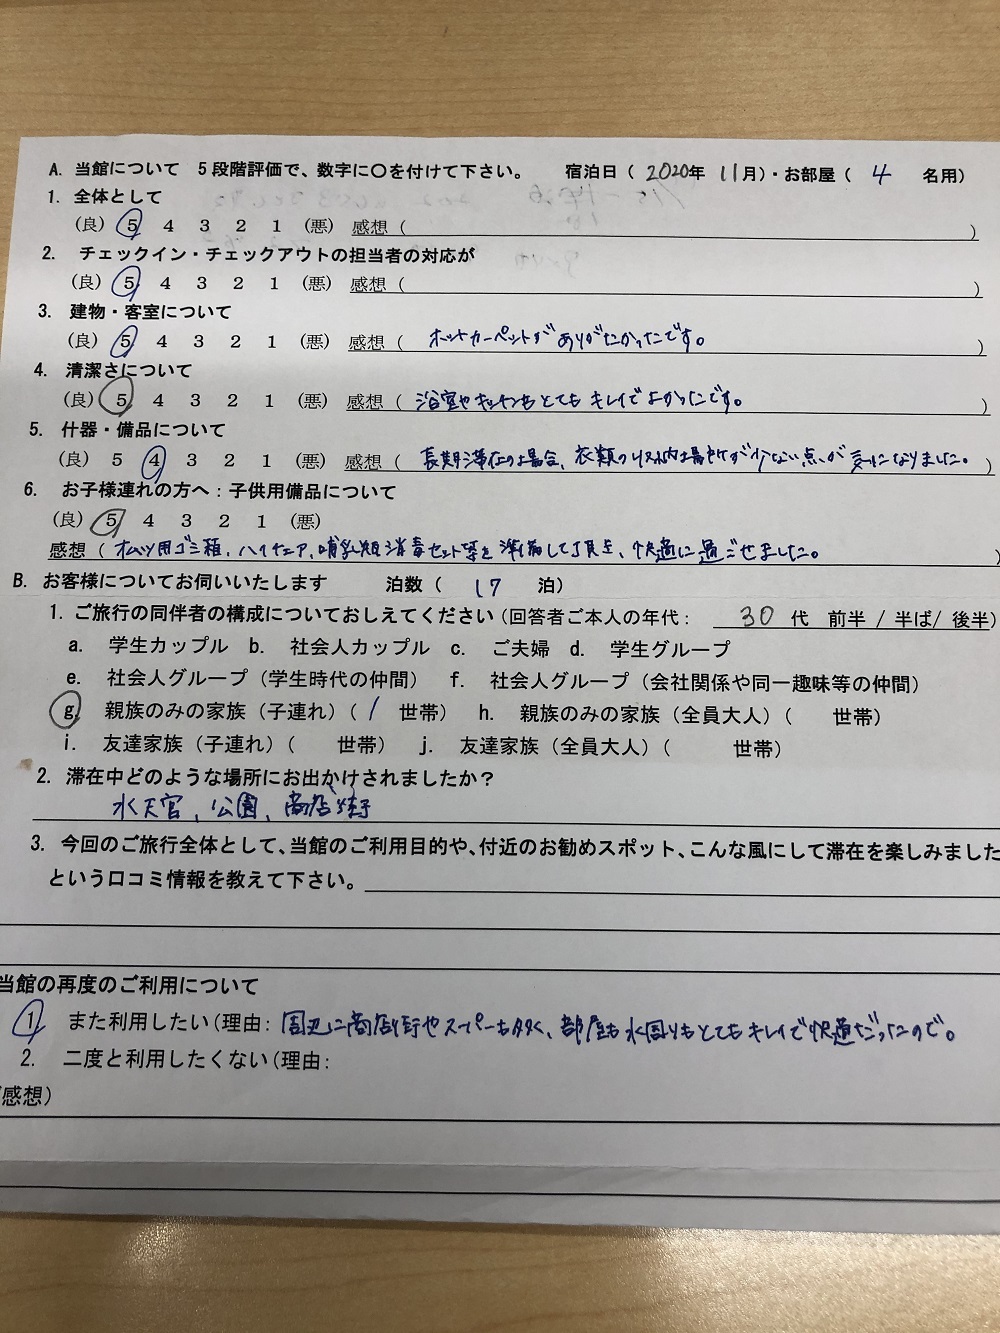 A. 当館について 5段階評価で、数字に〇を付けて下さい。 宿泊日( 2020年 11月)・お部屋( 4 名用)
1. 全体として
(良) 5 4 3 2 1 (悪) 感想( )
2. チェックイン・チェックアウトの担当者の対応が
(良) 5 4 3 2 1 (悪) 感想( )
3. 建物・客室について
(良) 5 4 3 2 1 (悪) 感想( ホットカーペットがありがたかったです。 )
4. 清潔さについて
(良) 5 4 3 2 1 (悪) 感想( 浴室やキッチンもとてもキレイでよかったです。 )
5. 什器・備品について
(良) 5 4 3 2 1 (悪) 感想( 長期滞在の場合、衣類の収納場所が少ない点が気になりました。 )
6. お子様連れの方へ:子供用備品について
(良) 5 4 3 2 1 (悪)
感想( オムツ用ゴミ箱、ハイチェア、哺乳瓶消毒セット等を準備して頂き、快適に過ごせました。 )
B. お客様についてお伺いいたします 泊数( 17 泊)
1. ご旅行の同伴者の構成についておしえてください(回答者ご本人の年代: 30 代 前半 / 半ば/ 後半)
a. 学生カップル b. 社会人カップル c. ご夫婦 d. 学生グループ
e. 社会人グループ(学生時代の仲間) f. 社会人グループ(会社関係や同一趣味等の仲間)
g. 親族のみの家族(子連れ)( 1 世帯) h. 親族のみの家族(全員大人)( 世帯)
i. 友達家族(子連れ)( 世帯) j. 友達家族(全員大人)( 世帯)
2. 滞在中どのような場所にお出かけされましたか?
水天宮、公園、商店街
3. 今回のご旅行全体として、当館のご利用目的や、付近のお勧めスポット、こんな風にして滞在を楽しみました
という口コミ情報を教えて下さい。
当館の再度のご利用について
1. また利用したい(理由: 周辺に商店街やスーパーも多く、部屋も水回りもとてもキレイで快適だったので。
2. 二度と利用したくない(理由:
感想)